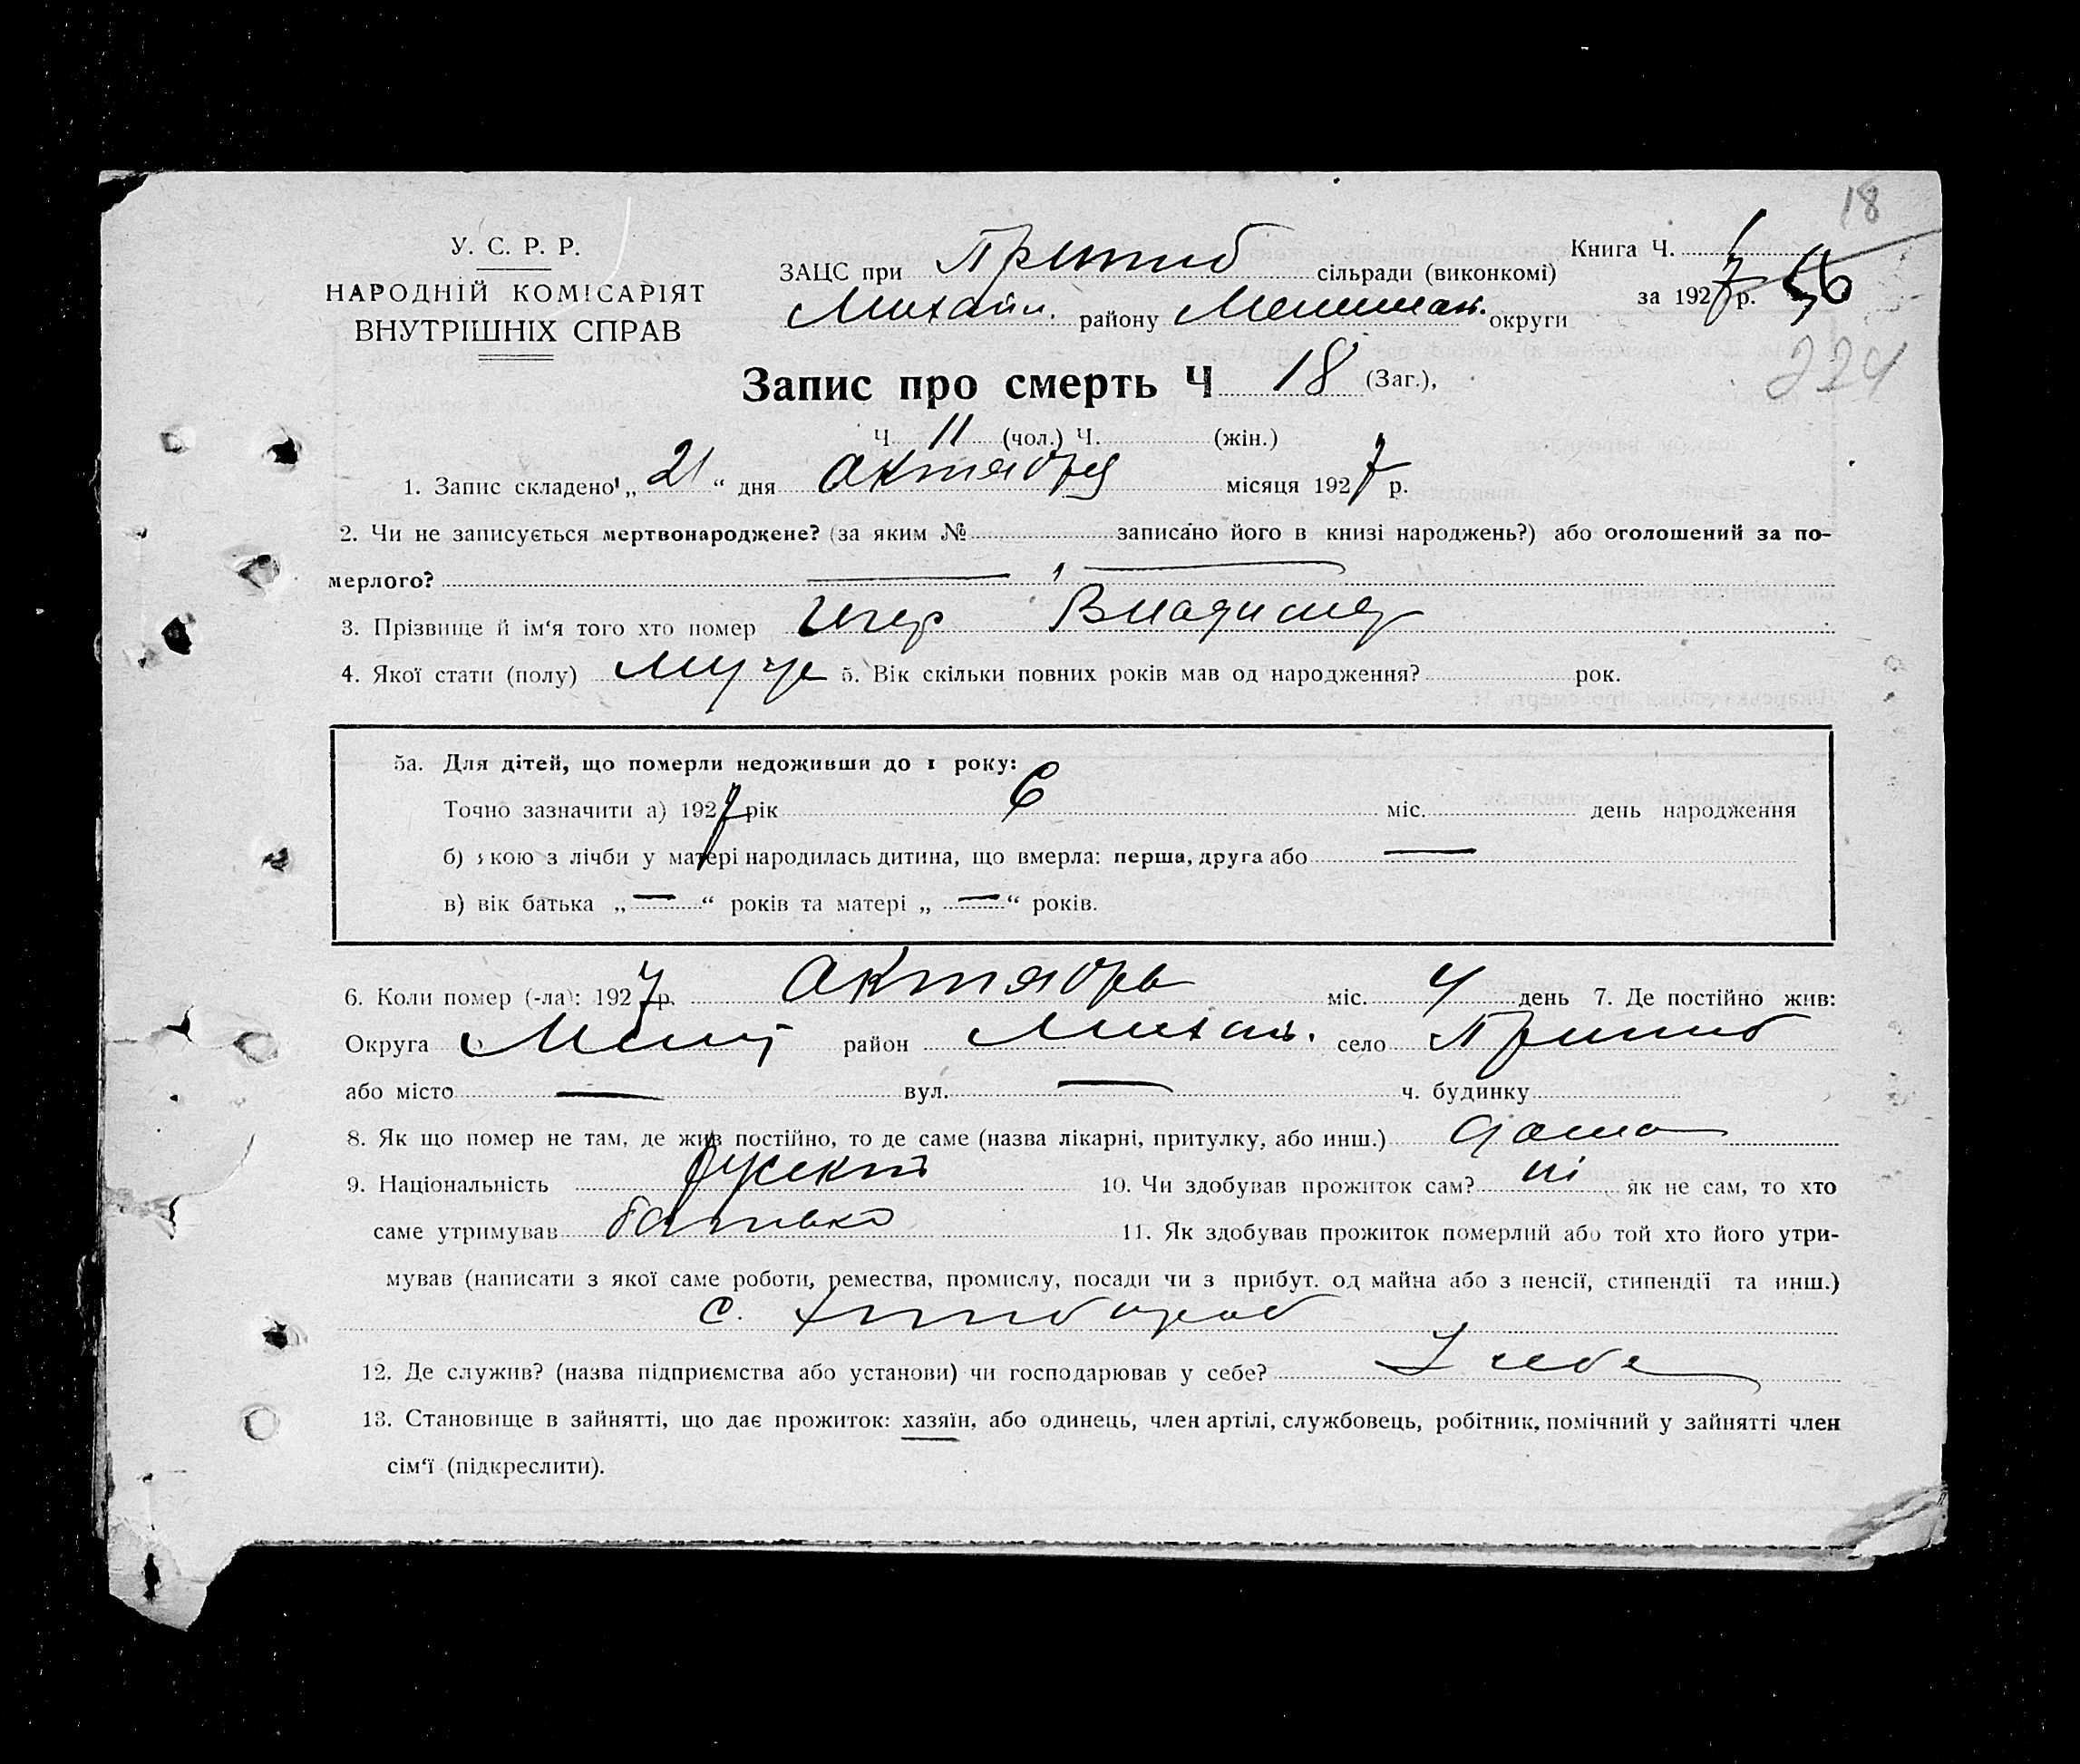 18
У. С. Р. Р.
НАРОДНІЙ КОМІСАРІЯТ
ВНУТРІШНІХ СПРАВ
ЗАЦС при Пришиб сільради (виконкомі)
Книга Ч. 1
Михайл. району округи
за 1927 р. 56
224
Запис про смерть Ч 18 (Заг.),
Ч 11 (чол.) Ч. (жін.)
1. Запис складено „ 21 “ дня октября місяця 1927 р.
2. Чи не записується мертвонароджене? (за яким № записано його в книзі народжень?) або оголошений за по-
мерлого?
3. Прізвище й ім‘я того хто помер Владимер
4. Якої стати (полу) муче 5. Вік скільки повних років мав од народження? рок.
5а. Для дітей, що померли недоживши до 1 року:
Точно зазначити а) 1927 рік 6 міс. день народження
б) якою з лічби у матері народилась дитина, що вмерла: перша, друга або —
в) вік батька „ — “ років та матері „ — “ років.
6. Коли помер (-ла): 1927 р. октябрь міс. 4 день 7. Де постійно жив:
Округа Мелит район Михай. село Пришиб
або місто — вул. — ч. будинку
8. Як що помер не там, де жив постійно, то де саме (назва лікарні, притулку, або инш.) дома
9. Національність руский 10. Чи здобував прожиток сам? ні як не сам, то хто
саме утримував батько 11. Як здобував прожиток померлий або той хто його утри-
мував (написати з якої саме роботи, ремества, промислу, посади чи з прибут. од майна або з пенсії, стипендії та инш.)
с. хлибороб
12. Де служив? (назва підприємства або установи) чи господарював у себе? У себе
13. Становище в зайнятті, що дає прожиток: хазяїн, або одинець, член артілі, службовець, робітник, помічний у зайнятті член
сім‘ї (підкреслити).